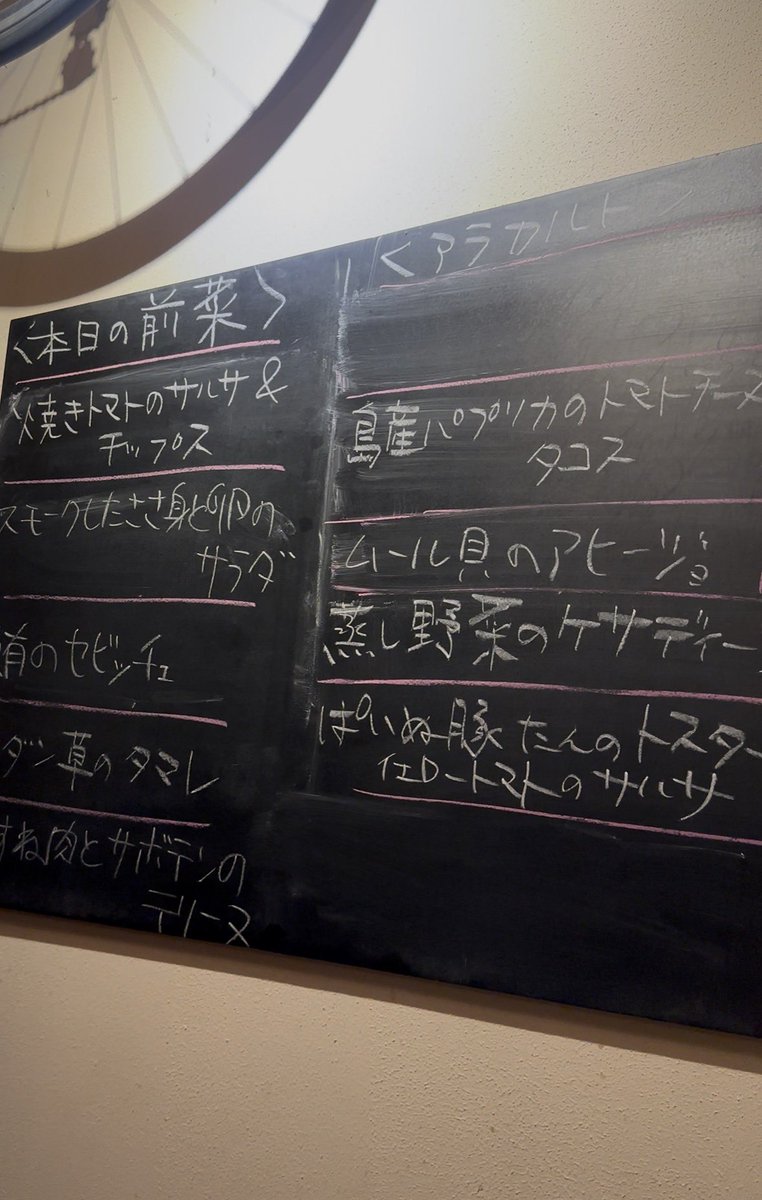 <本日の前菜>
焼きトマトのサルサ&
チップス
スモークしたささ身と卵の
サラダ
のセビッチェ
ダン草のタマレ
すね肉とサボテンの
テリーヌ
<アラカルト>
島産パプリカのトマトチーズ
タコス
ムール貝のアヒージョ
蒸し野菜のケサディー
ぱいぬ豚たんのトスタ
イエロートマトのサルサ